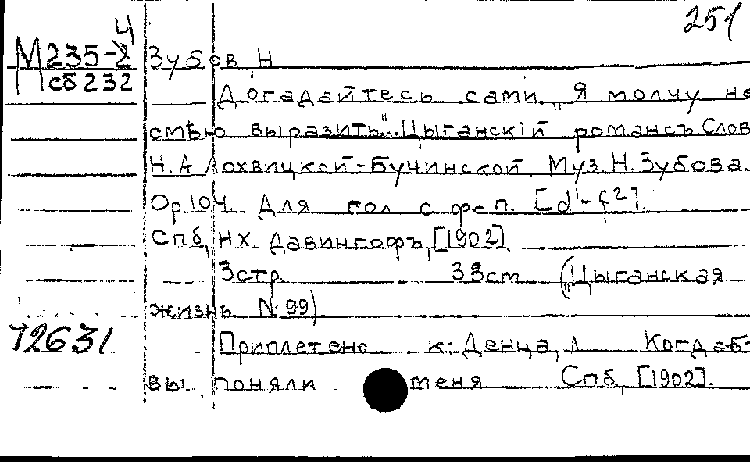 251
М235-4/2 Зубов Н
сб232
Догадайтесь сами „Я молчу не
смѣю выразить". Цыганскій романсъ Слов
Н.А Лохвицкой-Бучинской. Муз. Н. Зубова.
Op.104. Для гол с ф-п. [d'-f²].
Спб, Н.Х. Давингофъ, [1902].
3стр 33см („Цыганская
жизнь N. 99)
72631 Приплетено к: Денца, Л Когда б
вы поняли меня Спб, [1902].